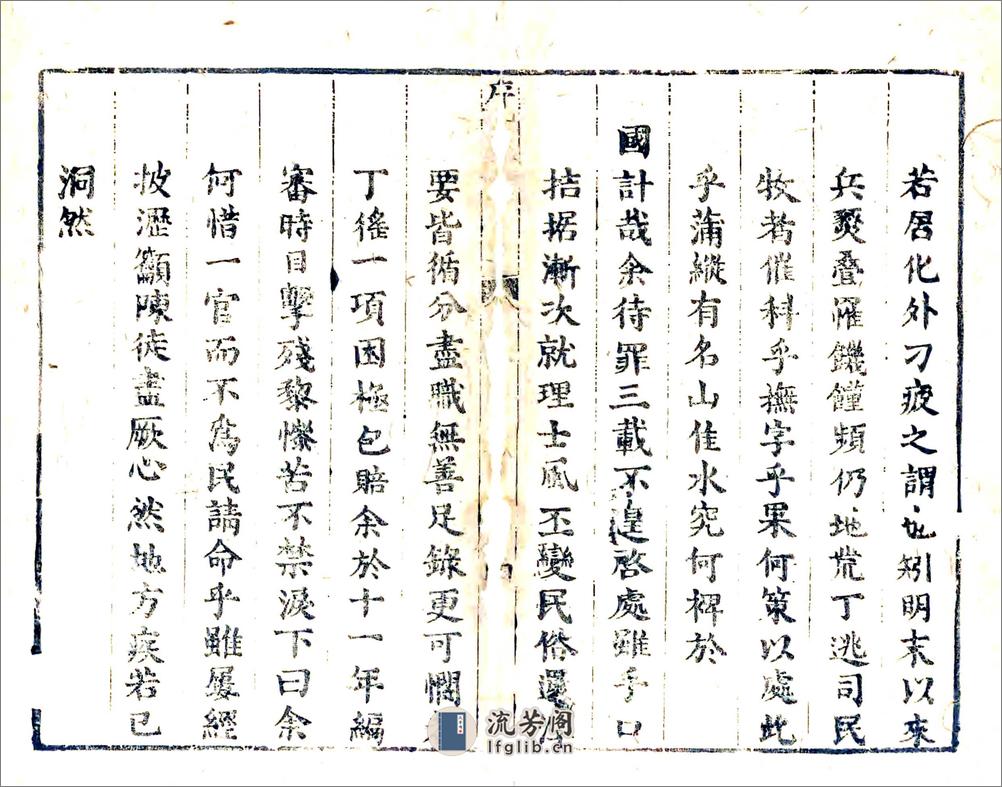 若居化外刁疲之謂也矧明末以來
兵燹疊罹饑饉頻仍地荒丁逃司民
牧者催科乎撫字乎果何策以處此
乎蒲縱有名山佳水究何裨於
國計哉余待罪三載不遑啓處雖手口
拮据漸次就理士風丕變民俗還
序
要皆循分盡職無善足錄更可憫
丁徭一項困極包賠余於十一年編
審時目擊殘黎慘苦不禁淚下曰余
何惜一官而不爲民請命乎雖屢經
披瀝籲陳徒盡厥心然地方疾苦已
洞然
流芳阁
lfglib.cn